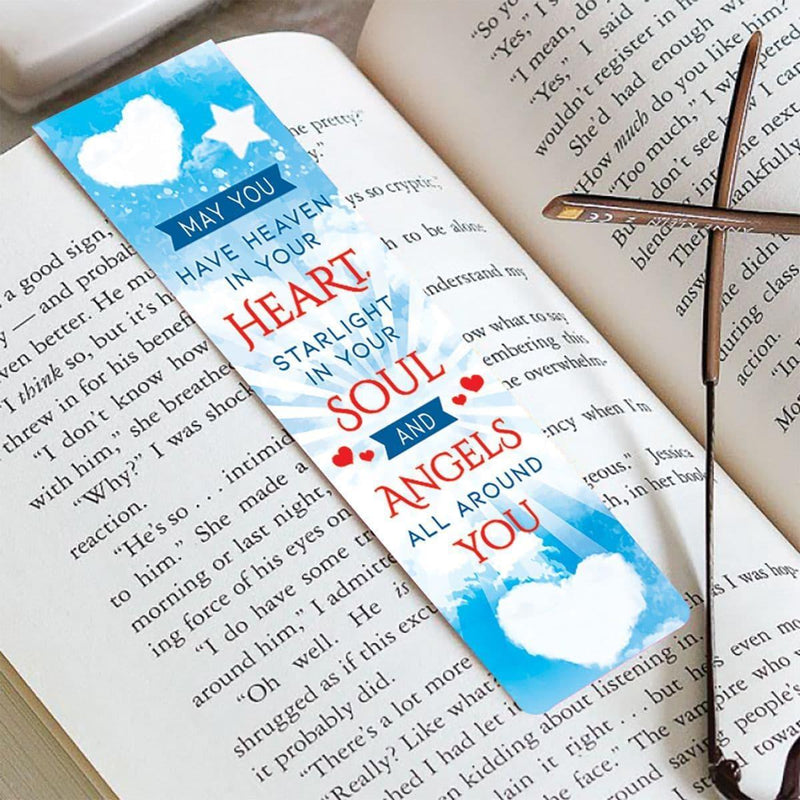 MAY YOU
HAVE HEAVEN
IN YOUR
HEART
STARLIGHT
IN YOUR
SOUL
AND
ANGELS
ALL AROUND
YOU
he pretty?"
ys so cryptic,"
h to be alone
nderstand my
ow what to say
embering this
e overwhelm-
ency when I'm
geous." Jessica
h, in her book
as I was hop-
a good sign,
y — and probab
ven better. He mu
"I think so, but it's h
threw in for his benef
"I don't know how
with him," she breathe
"Why?" I was shock
reaction.
"He's so . . . intimid
to him." She made a
morning or last night,
ing force of his eyes on
"I do have some tr
around him," I admitte
"Oh well. He is
shrugged as if this exc
it probably did.
"There's a lot more
"Really? Like what?
hed I had let i
en kidding about listening in.
lain it right . . . but he's even mo
he face." The vampire who
around saving people's
towar
"So yo
"Yes," I s
"I mean, do
"Yes," I said
wouldn't register in h
She'd had enough wi
"How much do you like him?
"Too much," I whispered
don't see how I can
the next
thankfully
blen
Ther
answ
she didn't
during class
action.
"In
Mo
CE